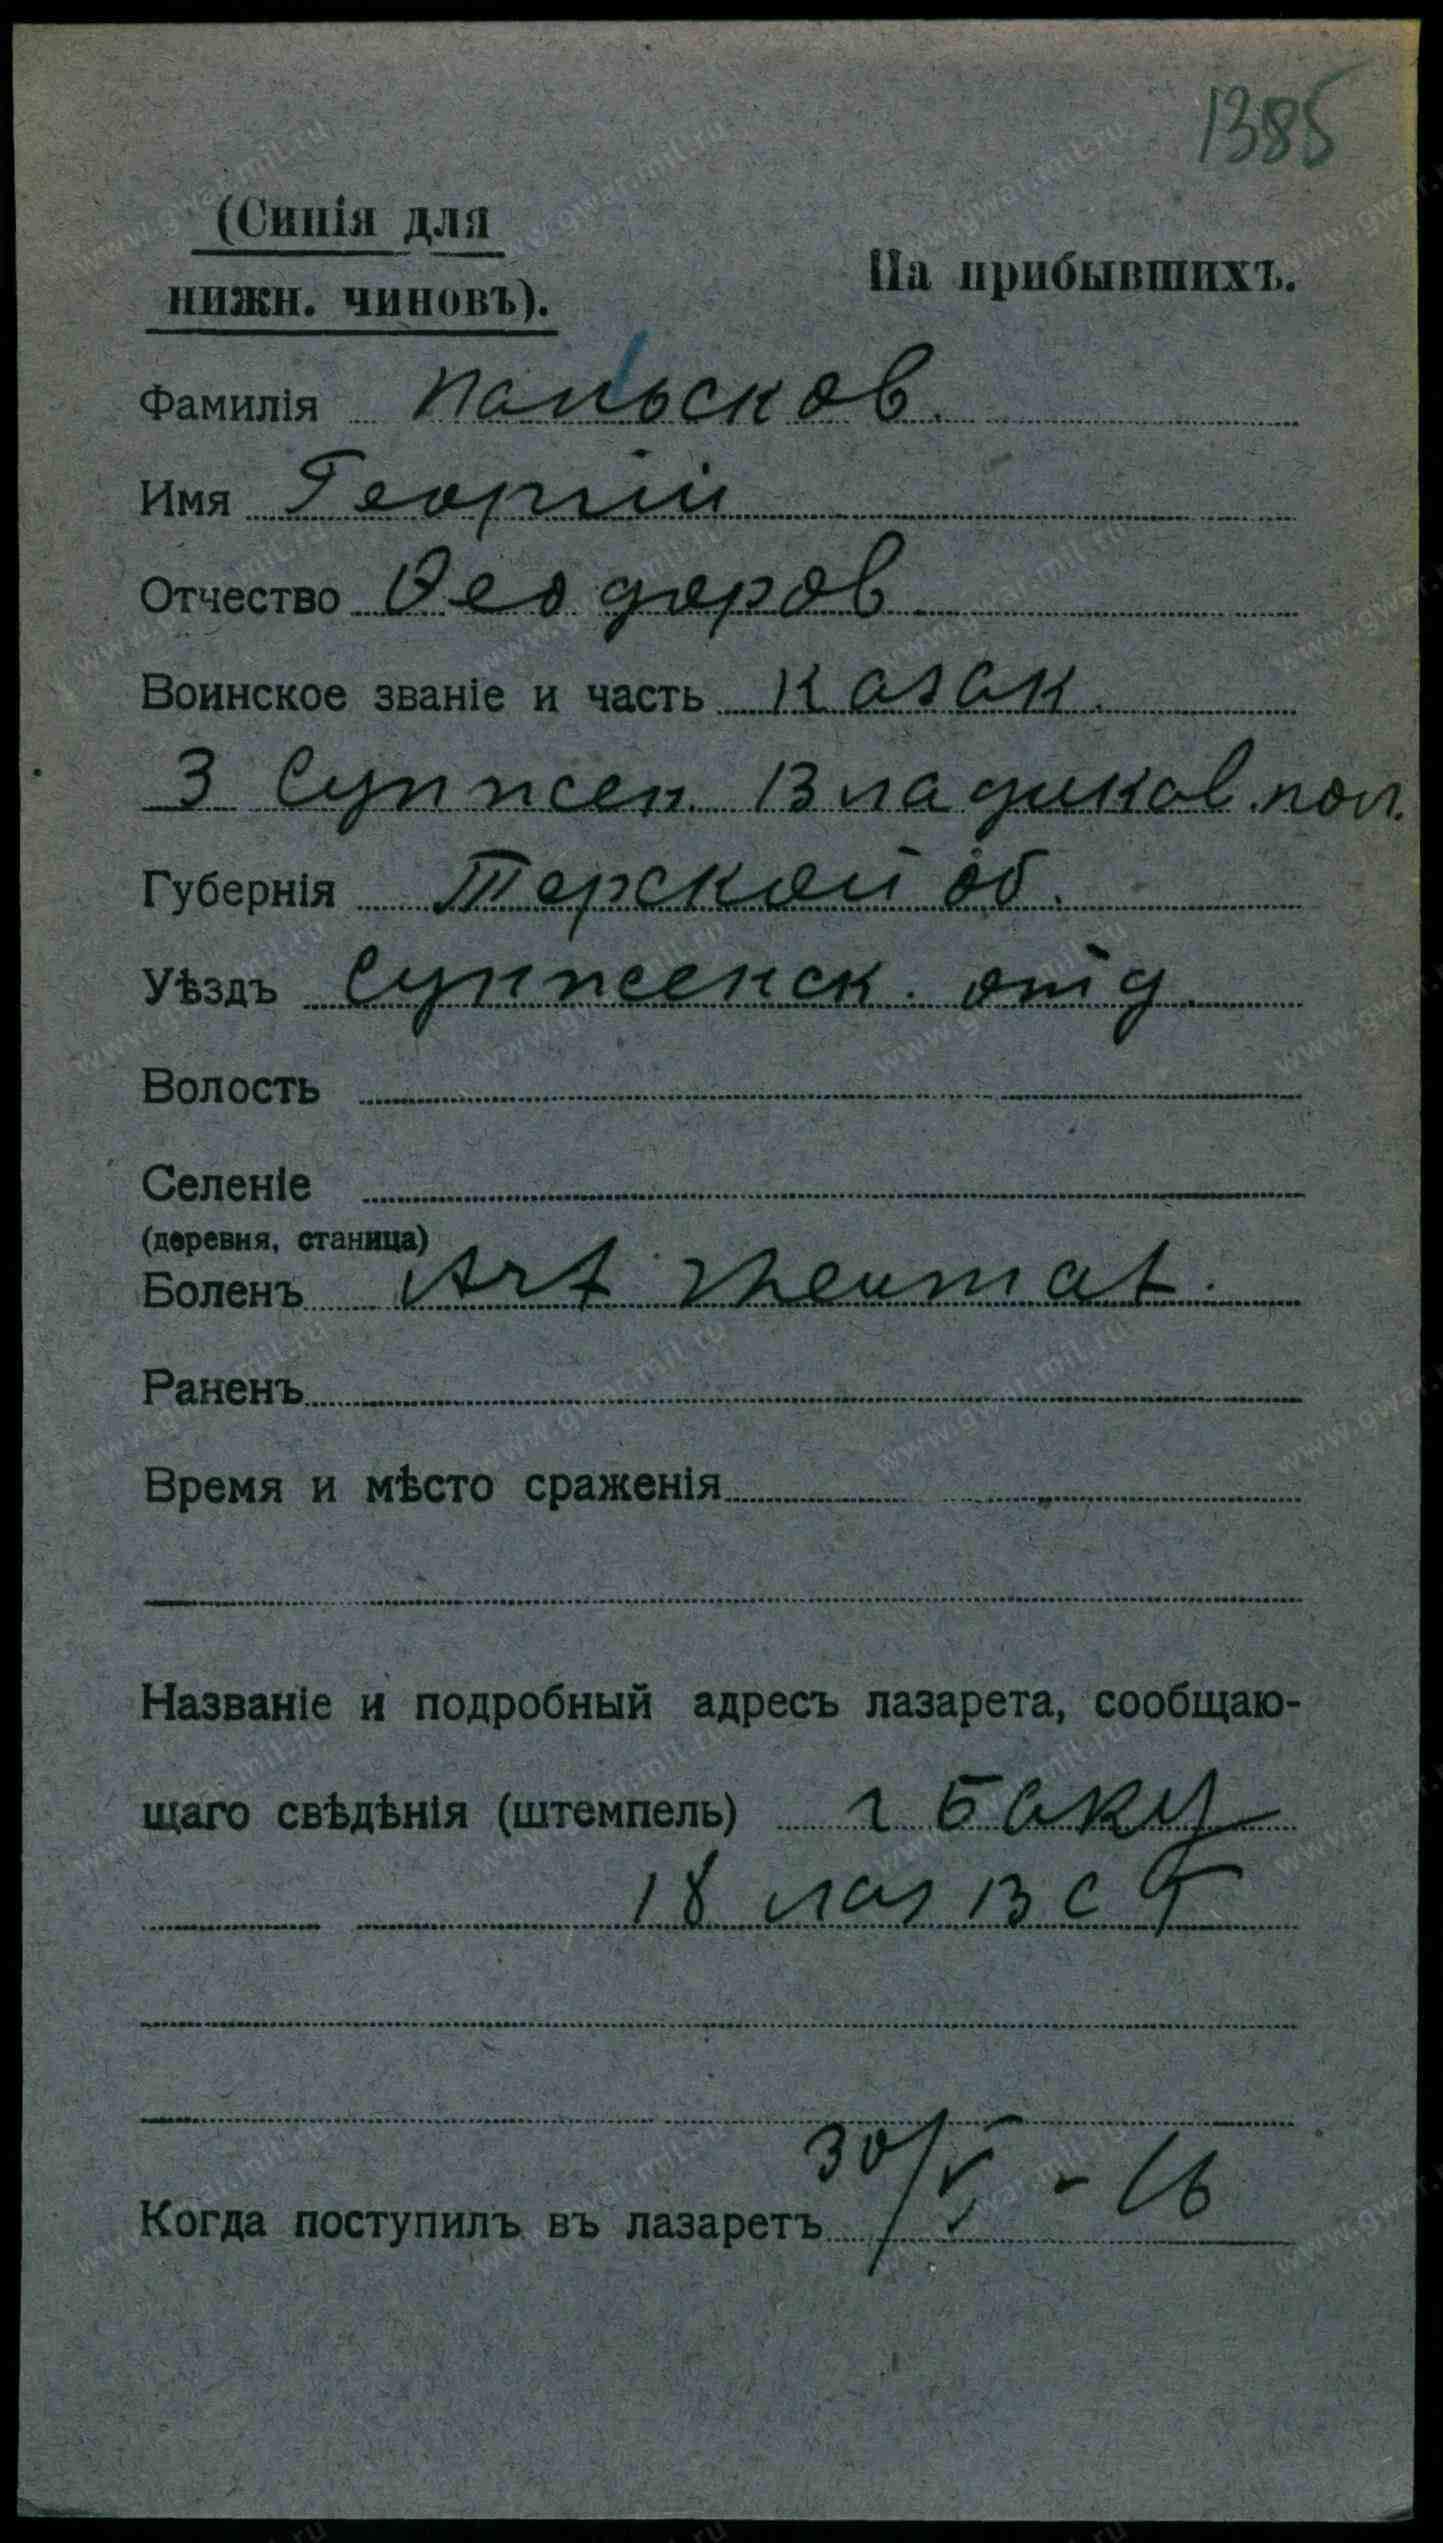 1385
(Синія для
нижн. чиновъ).
На прибывшихъ.
Фамилія Паньсков.
Имя Георгій
Отчество Ѳеодоров
Воинское званіе и часть казак.
3 Сунжен. Владиков. пол.
Губернія Терской об.
Уѣздъ Сунженск. отд.
Волость
Селеніе
(деревня, станица)
Боленъ Art rheumat.
Раненъ
Время и мѣсто сраженія
Названіе и подробный адресъ лазарета, сообщаю-
щаго свѣдѣнія (штемпель) г Баку
18 лаз В С Г
Когда поступилъ въ лазаретъ 30/V - 16
www.gwar.mil.ru